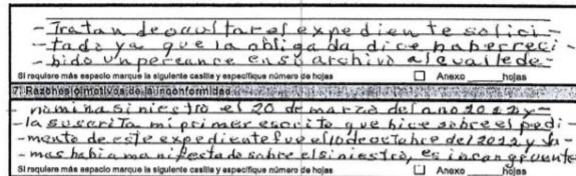 - Tratan de ocultar el expediente solici -
- tado ya que la obligada dice haber reci -
- bido un percance en su archivo al cual le de -
Si requiere más espacio marque la siguiente casilla y especifique número de hojas ☐ Anexo ____ hojas
7) Razones o motivos de la inconformidad
- nomina siniestro el 20 de marzo del año 2012 y -
- la suscrita mi primer escrito que hice sobre el pedi -
- mento de este expediente fue el 10 de octubre del 2012 y ja -
- mas habia manifestado sobre el siniestro, es incongruente
Si requiere más espacio marque la siguiente casilla y especifique número de hojas ☐ Anexo ____ hojas